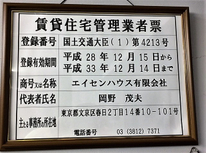 賃貸住宅管理業者票
登録番号 国土交通大臣(1)第4213号
登録有効期間 平成28年12月15日から
平成33年12月14日まで
商号又は名称 エイセンハウス有限会社
代表者氏名 岡野 茂夫
主たる事務所の所在地 東京都文京区春日2丁目14番10-101号
電話番号 03(3812)7371